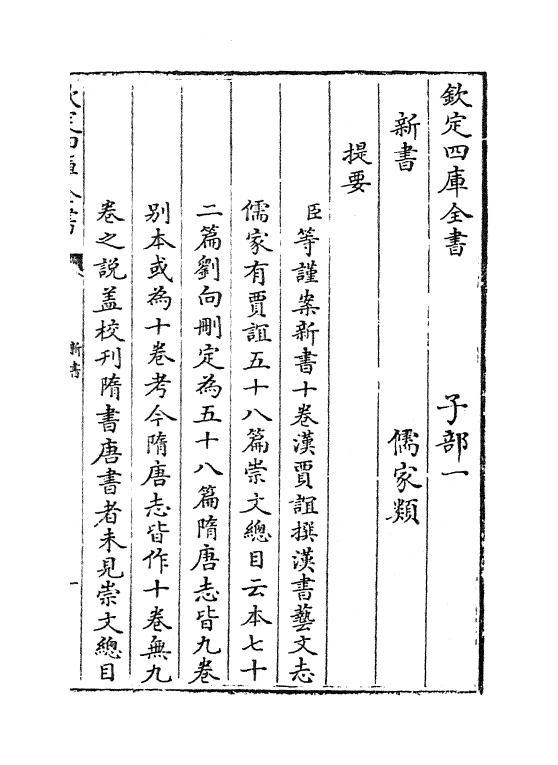 欽定四庫全書 子部一
新書 儒家類
提要
臣等謹案新書十卷漢賈誼撰漢書藝文志
儒家有賈誼五十八篇崇文總目云本七十
二篇劉向刪定為五十八篇隋唐志皆九卷
別本或為十卷考今隋唐志皆作十卷無九
卷之說盖校刊隋書唐書者未見崇文總目
欽定四庫全書 新書 一